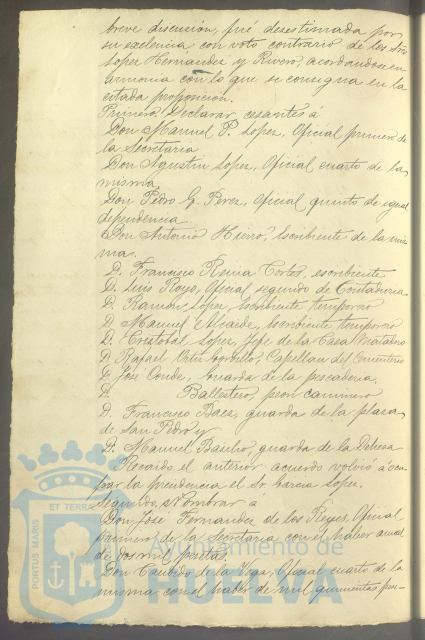 breve discusion, fué desestimada por
su exelencia con voto contrario de los Sres
Lopez Hernandez y Rivero, acordandose en
armonia con lo que se consigna en la
citada proposicion.
Primero. Declarar cesantes á
Don Manuel P. Lopez, Oficial primero de
la Secretaria
Don Agustin Lopez, Oficial cuarto de la
misma
Don Pedro G. Perez, Oficial quinto de igual
dependencia
Don Antonio Hierro, Escribiente de la mis-
ma.
D. Francisco Cortes, escribiente
D. Luis Rojo, Oficial segundo de Contaduria
D. Ramon Lopez, Escribiente temporero
D. Manuel Alcaide, Escribiente temporero
D. Cristobal Lopez, Jefe de la Casa Matadero
D. Rafael Capellan del Cementerio
D. José Conde, Guarda de la pescaderia.
D. Ballestero, peon caminero
D. Francisco Baez, guarda de la plaza
de San Pedro y
D. Manuel guarda de la Dehesa
Recaido el anterior acuerdo volvió á ocu-
par la presidencia el Sr. Garcia Lopez.
Segundo. Nombrar á
Don José Fernandez de los Reyes, Oficial
primero de la Secretaria con el haber anual
de dos mil pesetas
Don Candido de la Vega, Oficial cuarto de la
misma con el haber de mil quinientas pese-
PORTUS MARIS
ET TERRAE
Ayuntamiento de
HUELVA